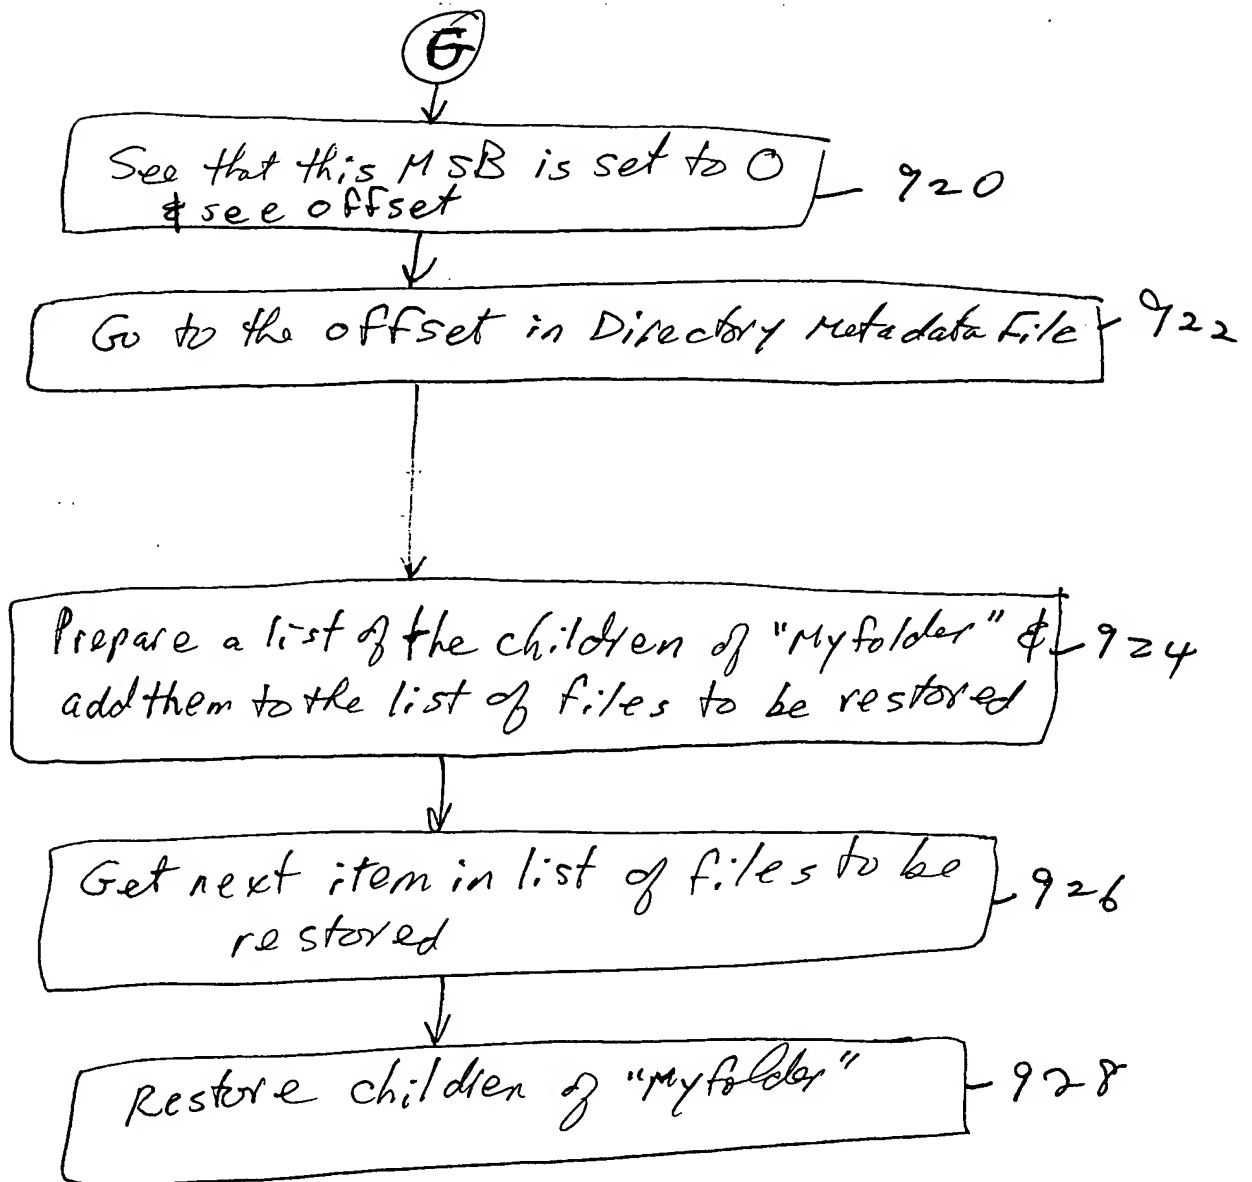 G
See that this MSB is set to 0
& see offset
920
Go to the offset in Directory Metadata File
922
Prepare a list of the children of "Myfolder" &
add them to the list of files to be restored
924
Get next item in list of files to be
restored
926
Restore children of "Myfolder"
928